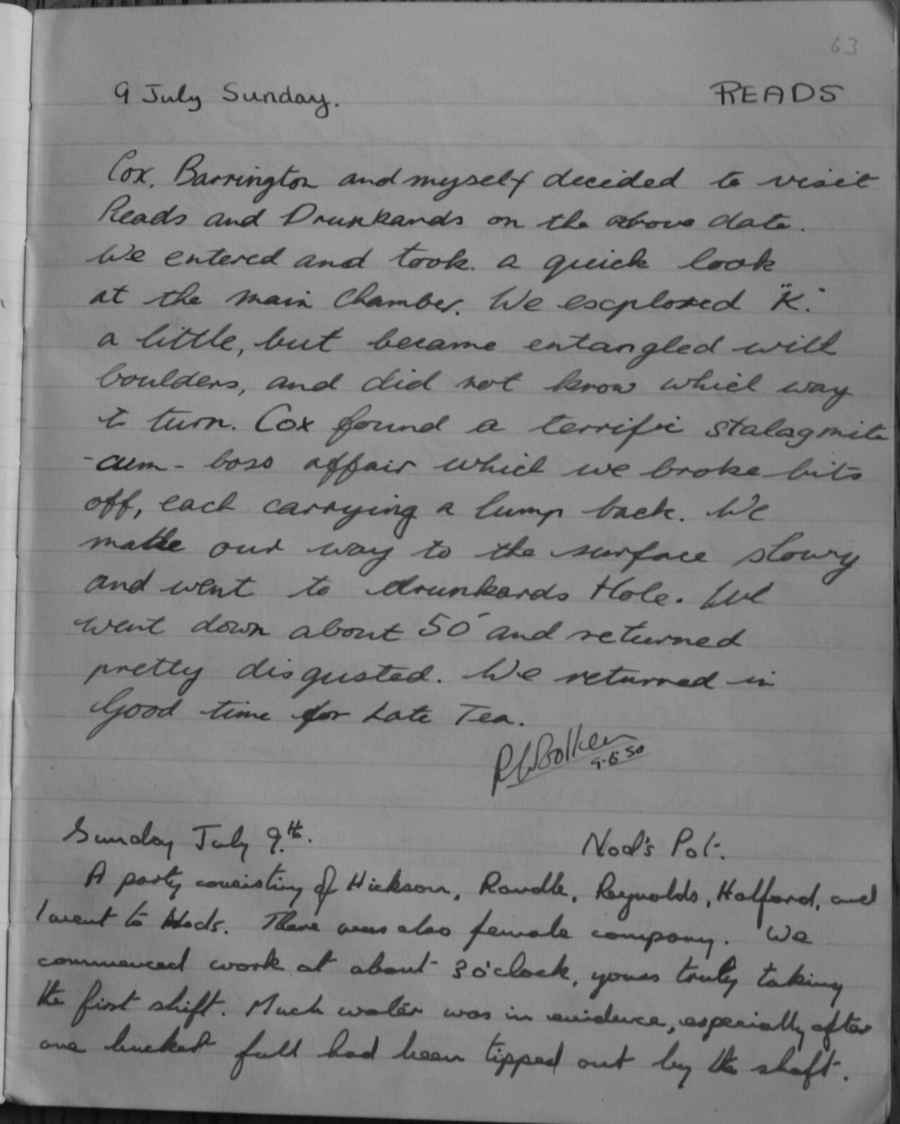 63
9 July Sunday. READS
Cox, Barrington and myself decided to visit
Reads and Drunkards on the above date.
We entered and took a quick look
at the main chamber. We explored "K".
a little, but became entangled with
boulders, and did not know which way
to turn. Cox found a terrific stalagmite
-cum-boss affair which we broke bits
off, each carrying a lump back. We
made our way to the surface slowly
and went to drunkards Hole. We
went down about 50' and returned
pretty disgusted. We returned in
Good time for Late Tea.
9.8.50
Sunday July 9th. Nod's Pot.
A party consisting of Hickson, Randle, Reynolds, Halford, and
I went to Nods. There was also female company. We
commenced work at about 3 o'clock, yours truly taking
the first shift. Much water was in evidence, especially after
one bucket full had been tipped out by the shaft.